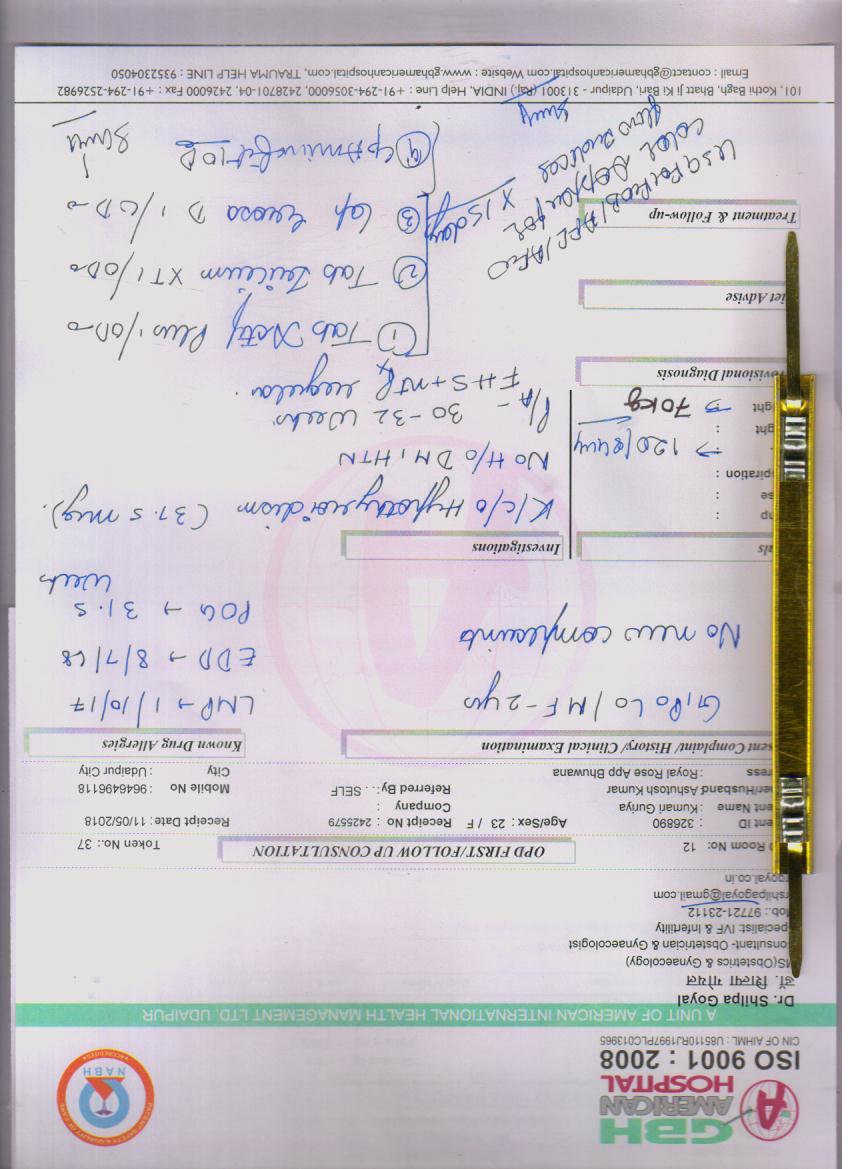 GBH
AMERICAN
HOSPITAL
ISO 9001 : 2008
CIN OF AIHML : U85110RJ1997PLC013965
PATIENT SAFETY & QUALITY OF CARE
NABH
ACCREDITED
A UNIT OF AMERICAN INTERNATIONAL HEALTH MANAGEMENT LTD. UDAIPUR
Dr. Shilpa Goyal
डॉ. शिल्पा गोयल
MS(Obstetrics & Gynaecology)
onsultant- Obstetrician & Gynaecologist
pecialist: IVF & Infertility
Mob.: 97721-23112
rshilpagoyal@gmail.com
rgoyal.co.in
Room No: 12
OPD FIRST/FOLLOW UP CONSULTATION
Token No.: 37
ent ID : 326890
Age/Sex: 23 / F
Receipt No : 2425579
Receipt Date: 11/05/2018
ent Name : Kumari Guriya
Company :
Mobile No : 9646496118
er/Husband: Ashutosh Kumar
Referred By: . . SELF
City : Udaipur City
ress : Royal Rose App Bhuwana
sent Complaint/ History/ Clinical Examination
Known Drug Allergies
G1P0L0 / MF - 2 yrs
LMP → 1/10/17
EDD → 8/7/18
No new complaints
POG → 31.5
Week
als
Investigations
mp :
se :
piration :
K/c/o Hypothyroidism (37.5 mcg).
No H/o DM, HTN
→ 120/80
ght :
ght → 70kg
P/A - 30-32 Weeks
FHS + nt regular.
ovisional Diagnosis
Rx
① Tab Plus 1/OD
iet Advise
② Tab XT 1/OD
③ Cap D 1/OD
x 15 days
Treatment & Follow-up
USG For
color Doppler for
flow
④
101, Kothi Bagh, Bhatt Ji Ki Bari, Udaipur - 313001 (Raj.) INDIA, Help Line : +91-294-3056000, 2428701-04, 2426000 Fax : +91-294-2526982
Email : contact@gbhamericanhospital.com Website : www.gbhamericanhospital.com, TRAUMA HELP LINE : 9352304050